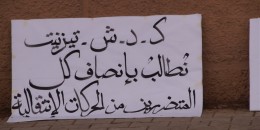 ك.د.ش.تيزنيت
نُطالبُ بإنصاف كل
المتضررين من الحركات الإنتقالية